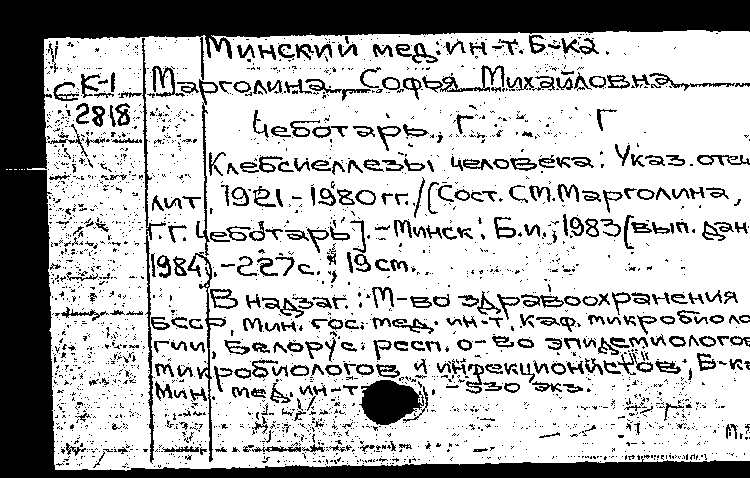 Минский мед. ин-т. Б-ка.
СК-1 Марголина, Софья Михайловна
2818
Чеботарь, Г. Г
Клебсиеллезы человека: Указ. отеч
лит. 1921-1980 гг. / [Сост. С.М. Марголина,
Г.Г. Чеботарь]. - Минск: Б.и., 1983 (вып. дан.
1984). - 227 с.; 19 cm.
В надзаг.: М-во здравоохранения
БССР, Мин. гос. мед. ин-т, Каф. микробиоло
гии, Белорус. респ. о-во эпидемиологов
микробиологов и инфекционистов; Б-ка
Мин. мед. ин-та. - 530 экз.